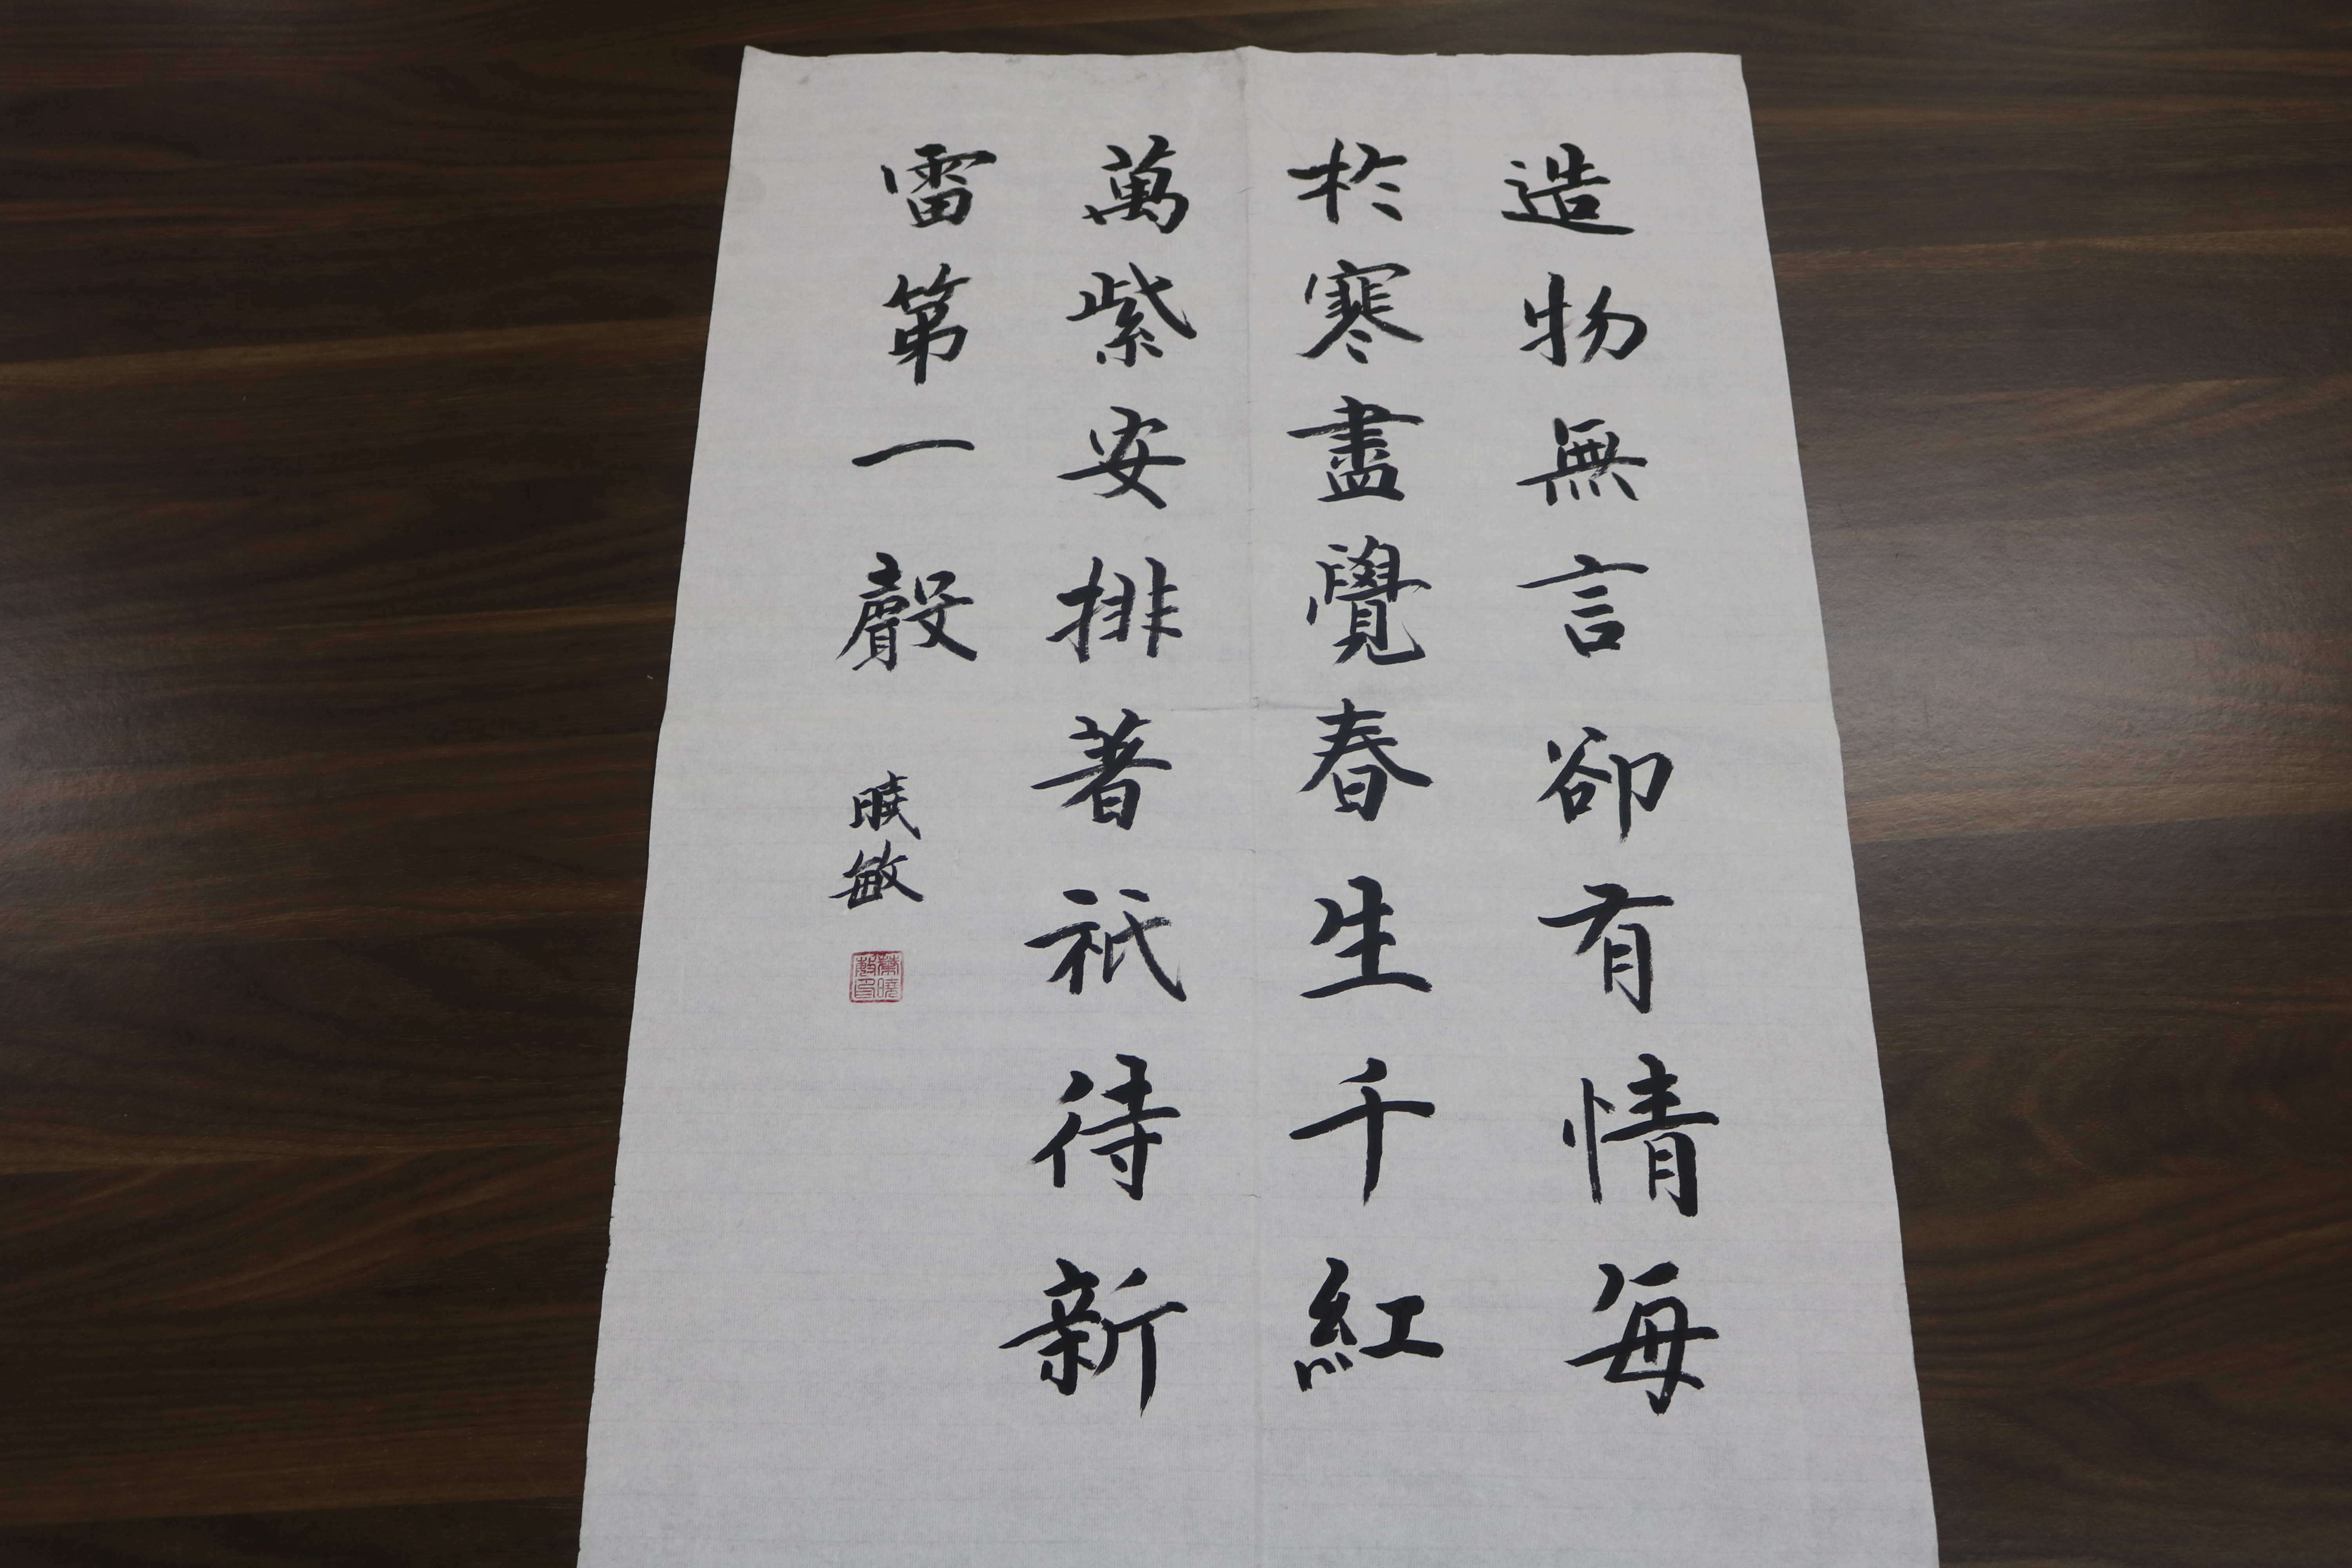 造物無言卻有情每
於寒盡覺春生千紅
萬紫安排著祇待新
雷第一聲
曉敏